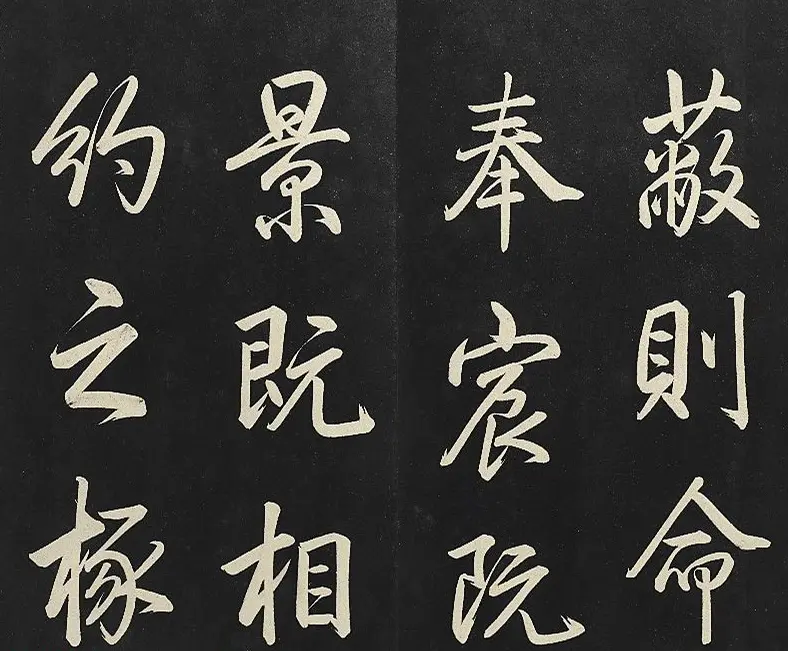 蔽則命
奉宸阮
景既相
約之椽